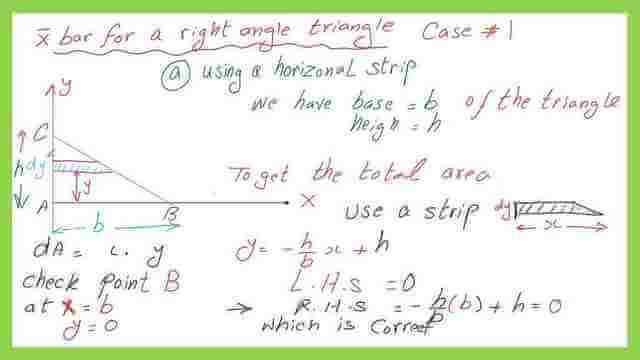 x̄ bar for a right angle triangle Case # 1
(a) using a horizonal strip
We have base = b of the triangle
heign = h
y
C
h dy
y
A
B
x
b
To get the total area
use a strip dy
x
dA = L. y
y = -h/b x + h
check point B
L.H.S = 0
at x = b
→ R.H.S = -h/b (b) + h = 0
y = 0
which is correct